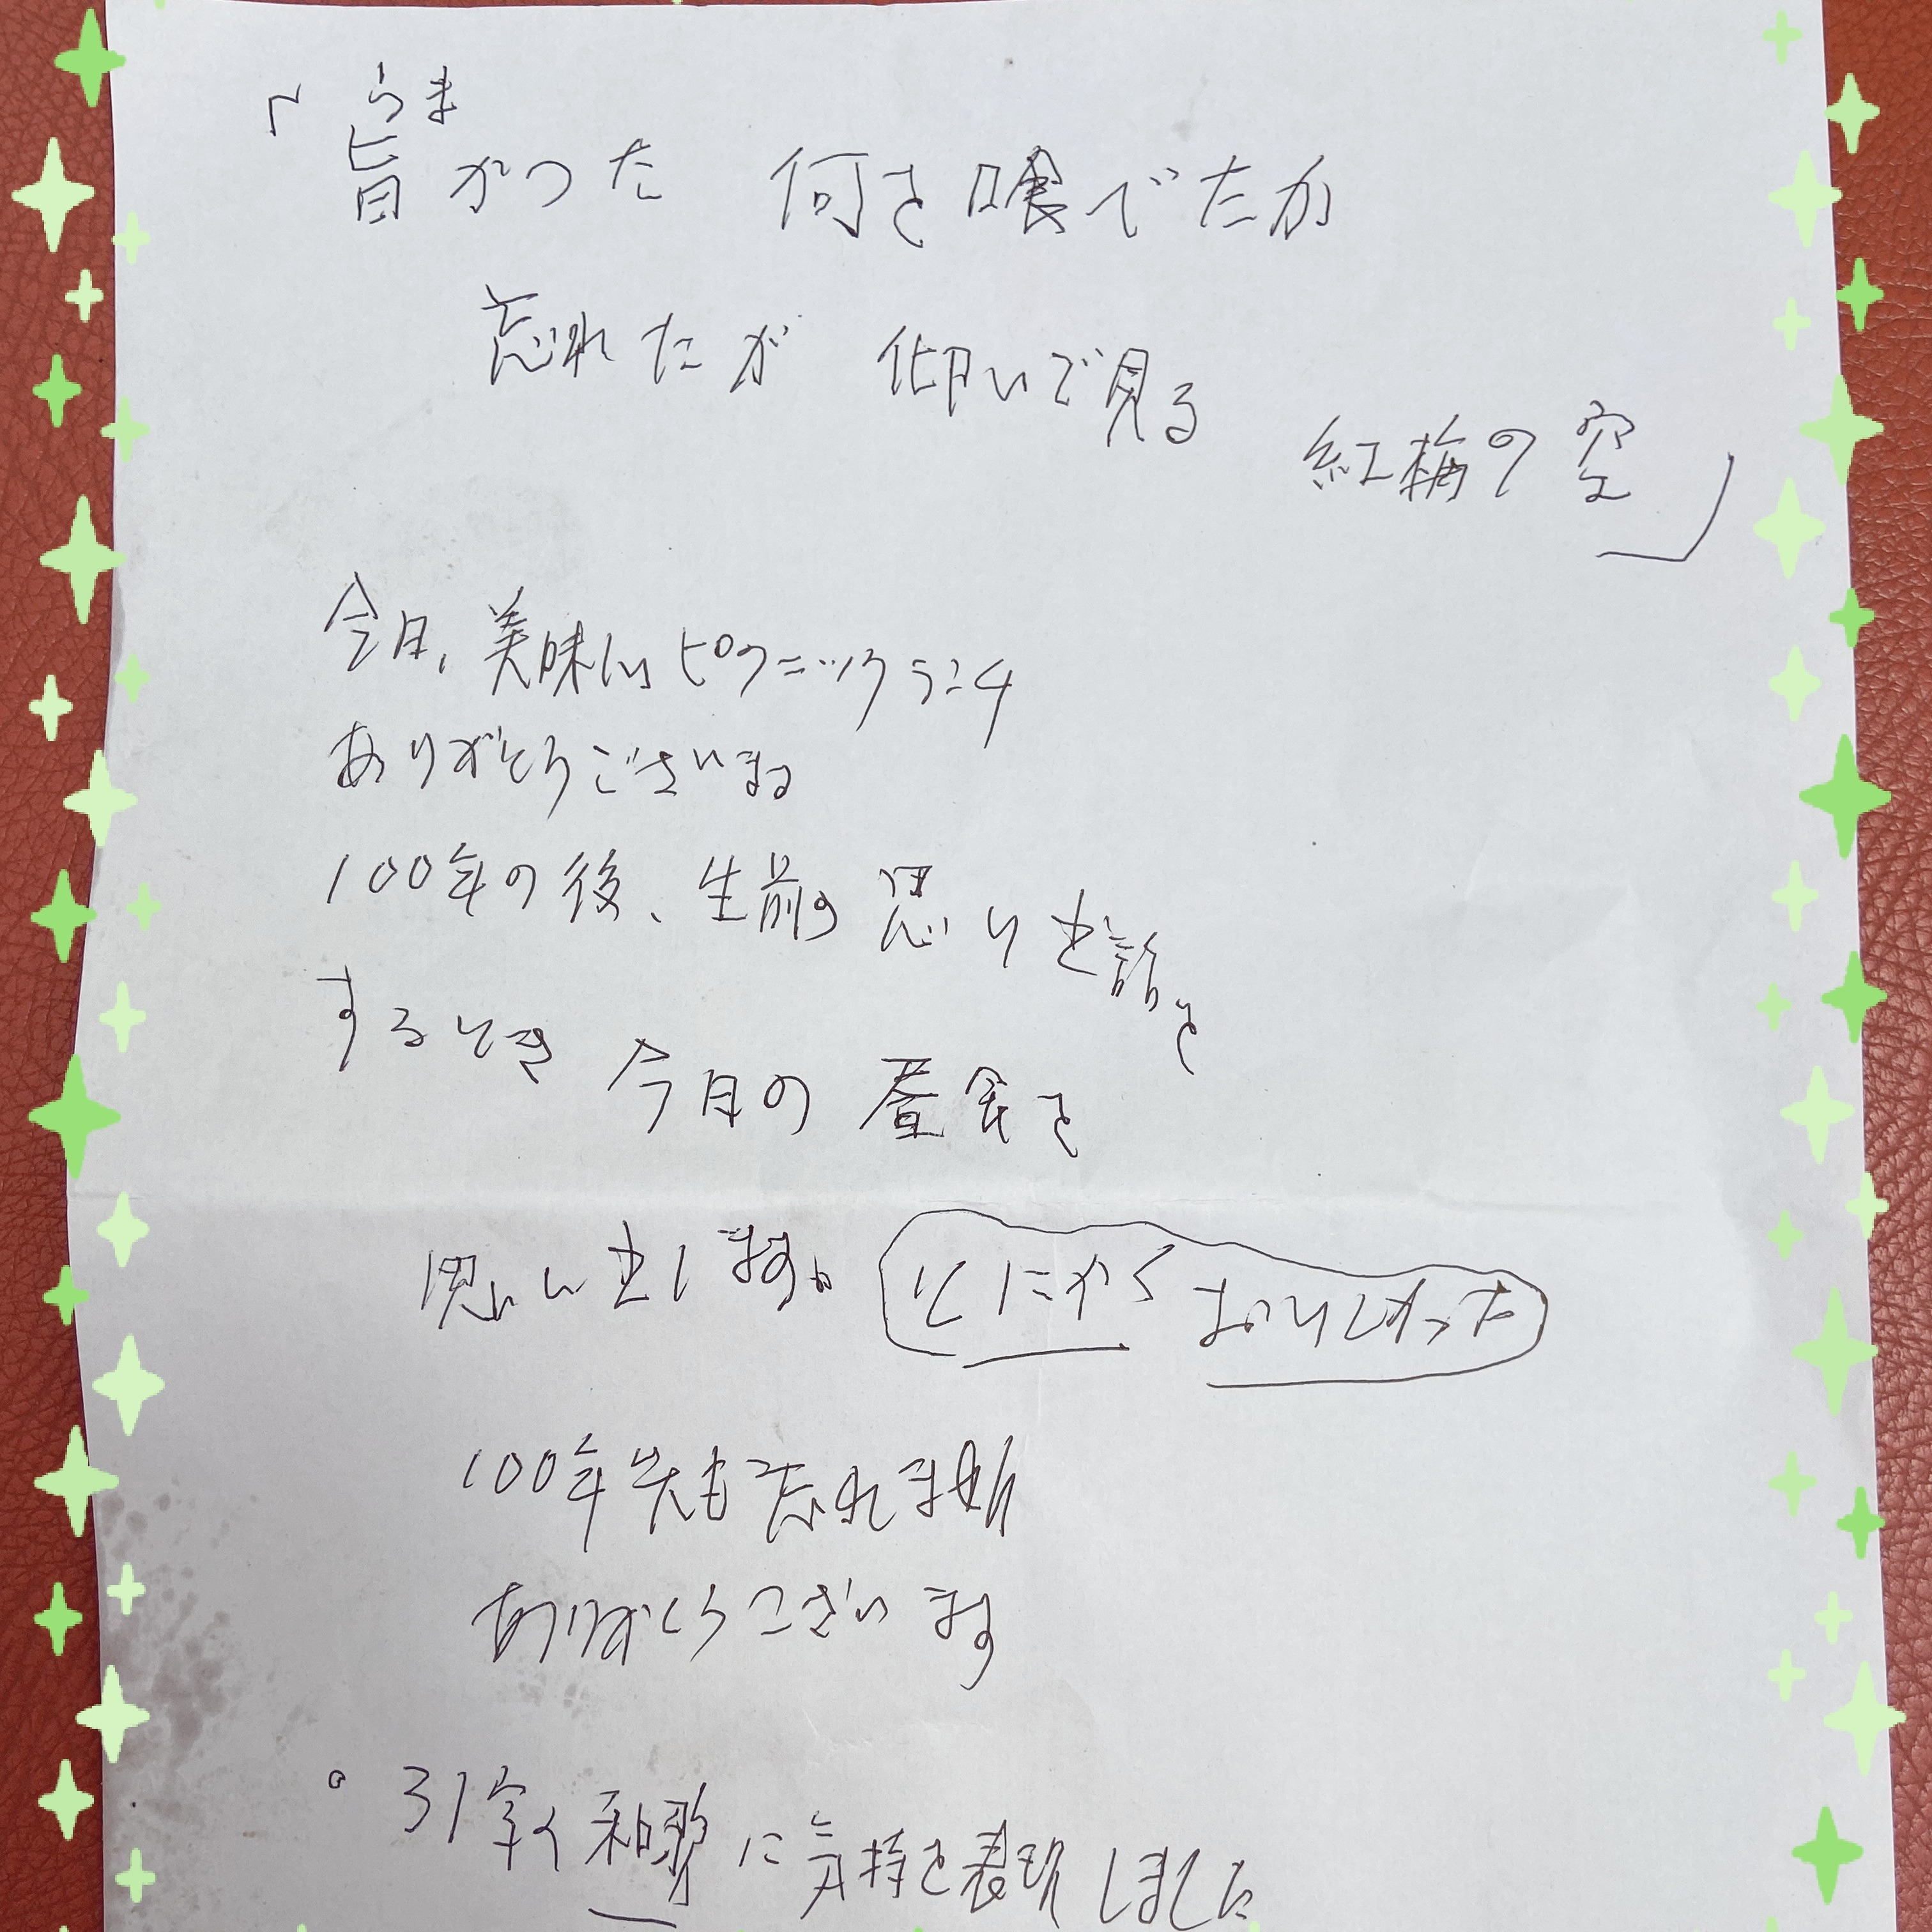 「旨かった 何を喰べたか
うま
忘れたが 仰いで見る
紅梅の空」
今日、美味しいピクニックランチ
ありがとうございます
100年の後、生前の思い出話を
するとき 今日の昼食を
思い出します。とにかくおいしかった
100年先も忘れません
ありがとうございます
。31字の和歌に気持を表現しました